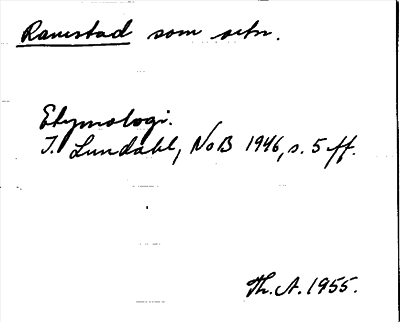 Ramstad som ortn.
Etymologi.
I. Lundahl, NoB 1946, s. 5 ff.
Th. A. 1955.